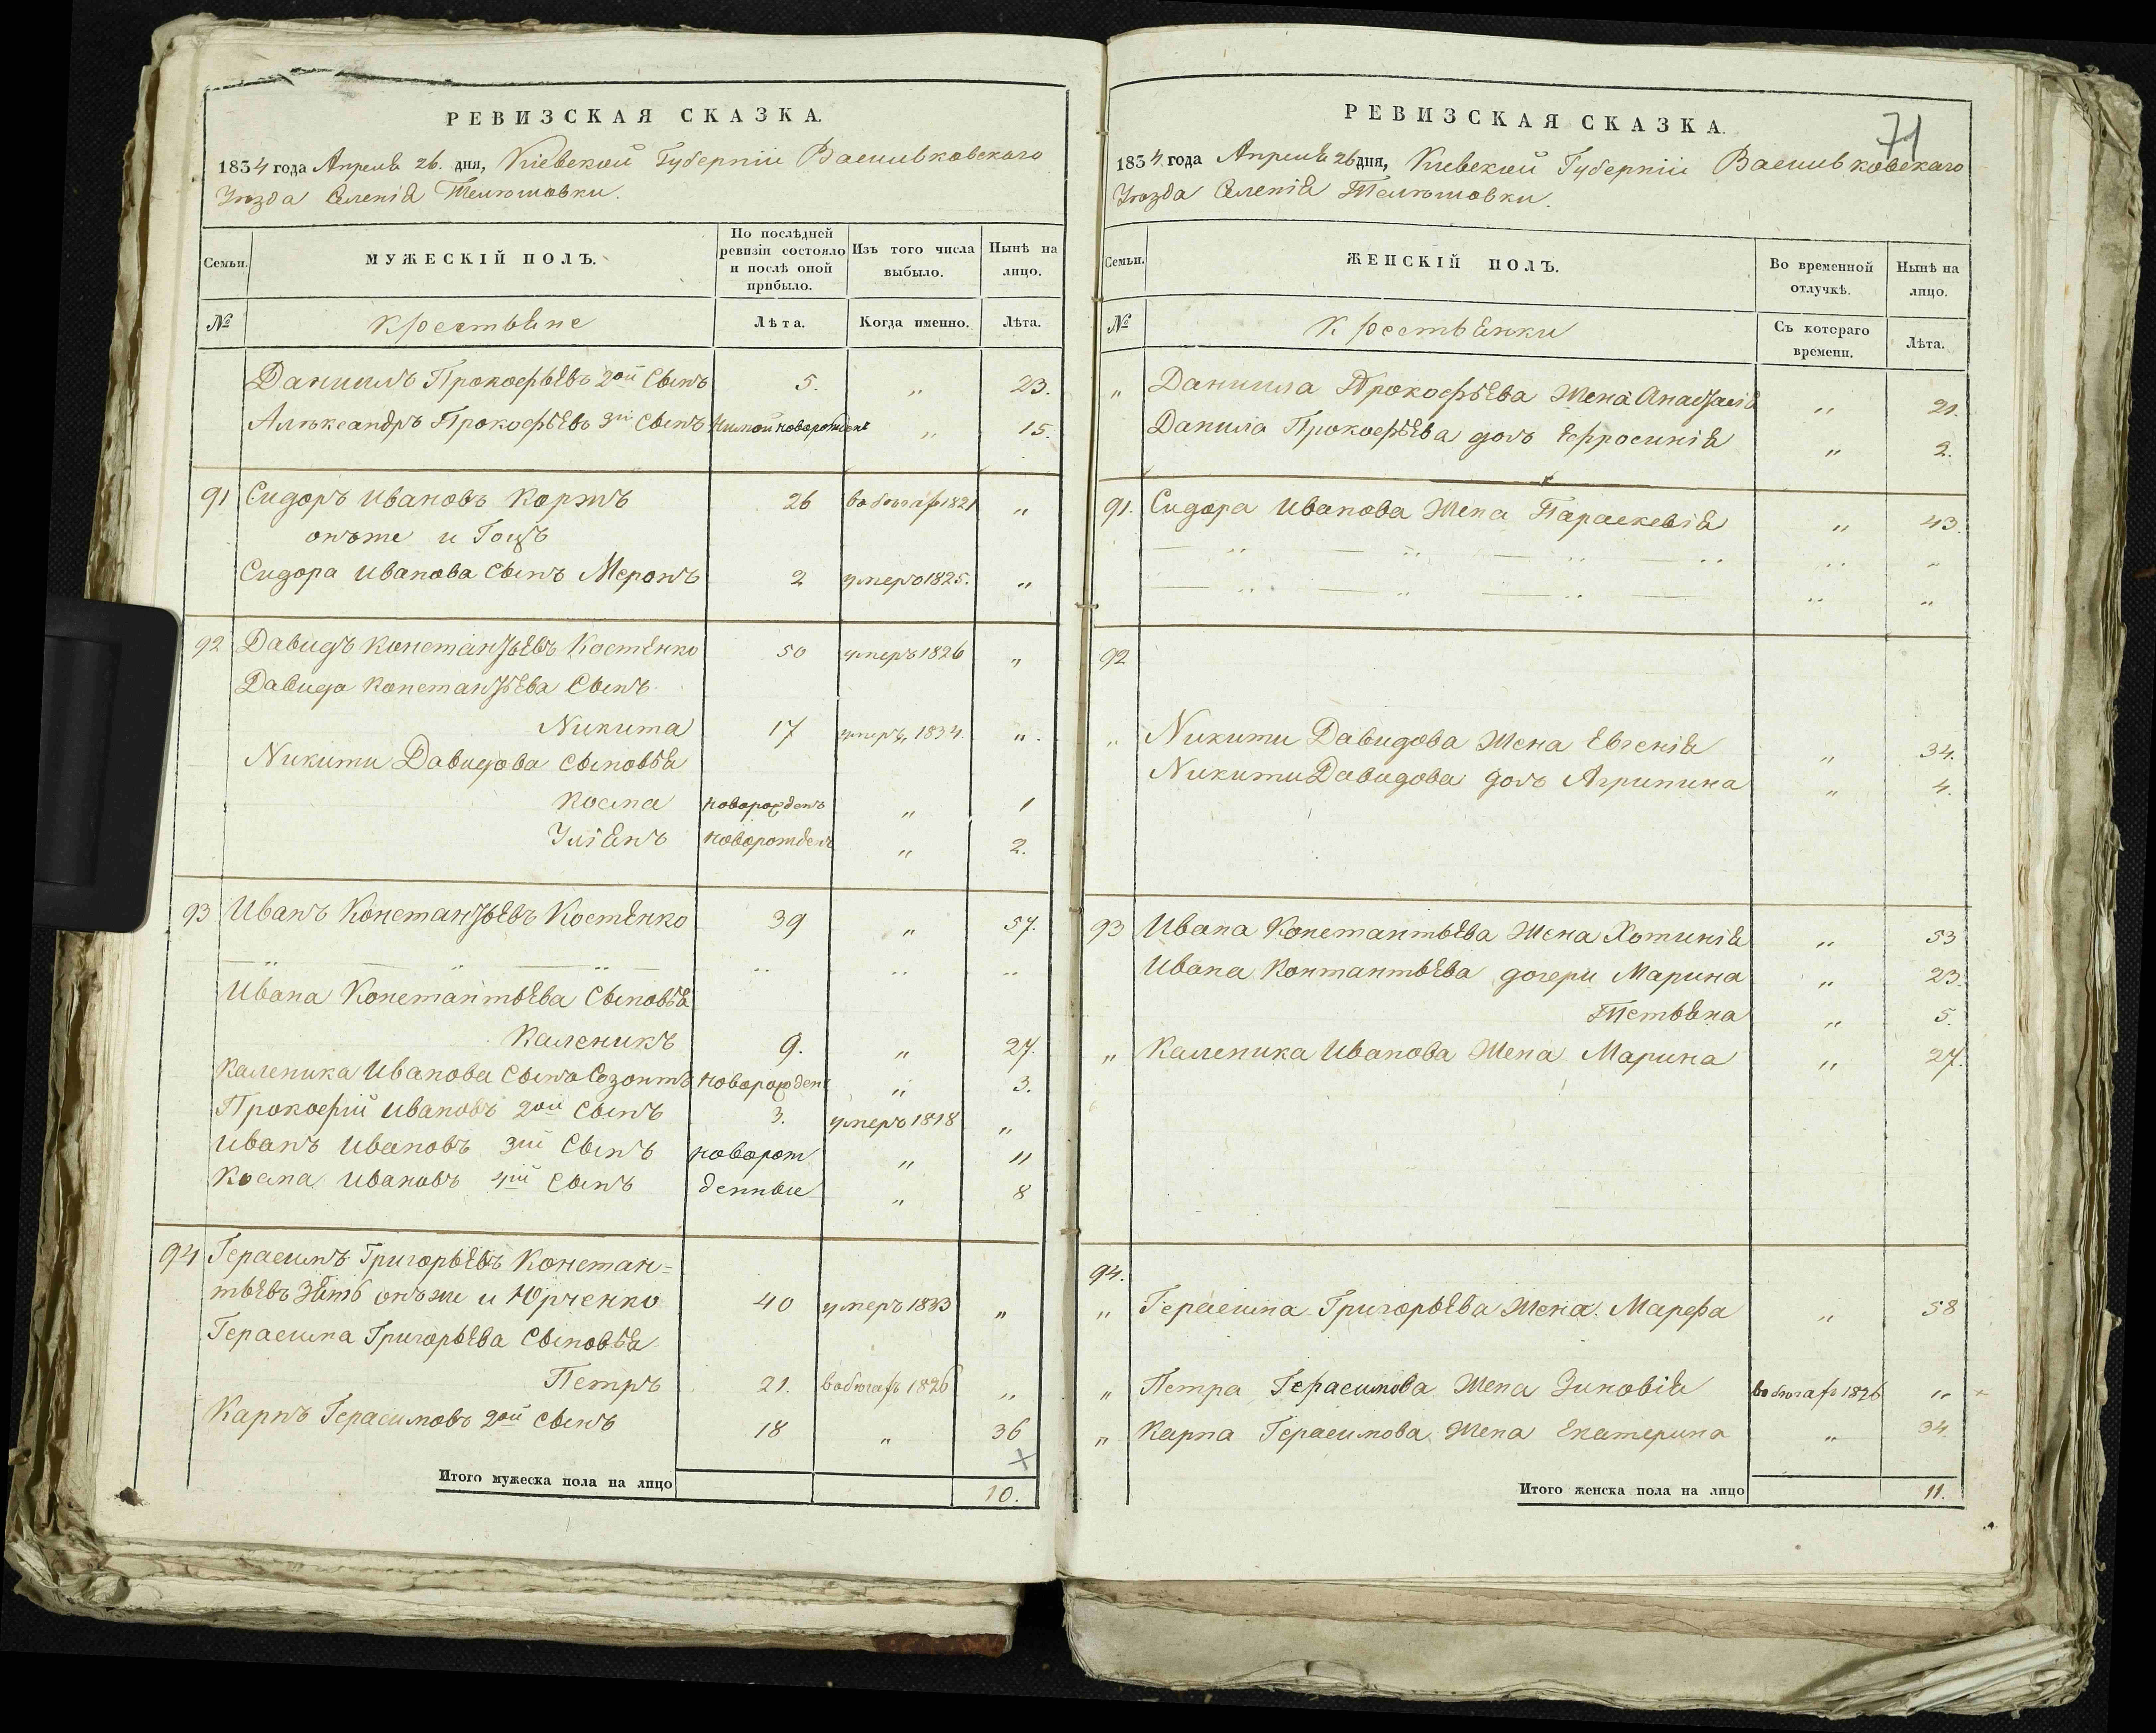 РЕВИЗСКАЯ СКАЗКА.
1834 года Апреля 26. дня, Кіевской Губерніи Васильковскаго
Уѣзда Селенія Телюшовки.
Семьи. МУЖЕСКІЙ ПОЛЪ. По послѣдней ревизіи состояло и послѣ оной прибыло. Изъ того числа выбыло. Нынѣ на лицо.
№ Крестьяне Лѣта. Когда именно. Лѣта.
Даниилъ Прокофьевъ 2ой Сынъ 5. „ 23.
Алѣксандръ Прокофьевъ 3й Сынъ новорожденъ „ 15.
91 Сидоръ Ивановъ Коржъ 26 въ бѣгаф 1821 „
онъже и Гоцъ
Сидора Иванова Сынъ Меронъ 2 умеръ 1825. „
92 Давидъ Константьевъ Костенко 50 умеръ 1826 „
Давида Константьева Сынъ
Никита 17 умеръ, 1834. „
Никиты Давидова Сыновья
Косма новорожденъ „ 1
Уліянъ новорожденъ „ 2.
93 Иванъ Константьевъ Костенко 39 „ 57.
— „ — „ — „ — „ „ „
Ивана Константьева Сыновья
Каленикъ 9. „ 27.
Каленика Иванова Сынъ Созонтъ новорожденъ „ 3.
Прокофій Ивановъ 2ой Сынъ 3. умеръ 1818 „
Иванъ Ивановъ 3ій Сынъ новорож „ 11
Косма Ивановъ 4ій Сынъ денные „ 8
94 Герасимъ Григорьевъ Констан=
тьевъ Зять онъже и Юрченко 40 умеръ 1833 „
Герасима Григорьева Сыновья
Петръ 21. въ бѣгафъ 1826 „
Карпъ Герасимовъ 2ой сынъ 18 „ 36
Итого мужеска пола на лицо 10.
71
РЕВИЗСКАЯ СКАЗКА.
1834 года Апреля 26 дня, Кіевской Губерніи Васильковскаго
Уѣзда Селенія Телюшовки.
Семьи. ЖЕНСКІЙ ПОЛЪ. Во временной отлучкѣ. Нынѣ на лицо.
№ Крестьянки Съ котораго времени. Лѣта.
„ Даниила Прокофьева Жена Анастасія „ 21.
Данила Прокофьева дочь Ефросинія „ 2.
91. Сидора Иванова Жена Параскевія „ 43.
— „ — „ — „ — „ „ „
— „ — „ — „ — „ „
92
„ Никиты Давидова Жена Евгенія „ 34.
Никиты Давидова дочь Агрипина „ 4.
93 Ивана Константьева Жена Хотинія „ 53
Ивана Контантьева дочери Марина „ 23.
Тетьяна „ 5.
„ Каленика Иванова Жена Марина „ 27.
94.
„ Герасима Григорьева Жена Марфа „ 58
„ Петра Герасимова Жена Зиновія въ бѣгафъ 1826 „
„ Карпа Герасимова Жена Екатерина „ 34.
Итого женска пола на лицо 11.